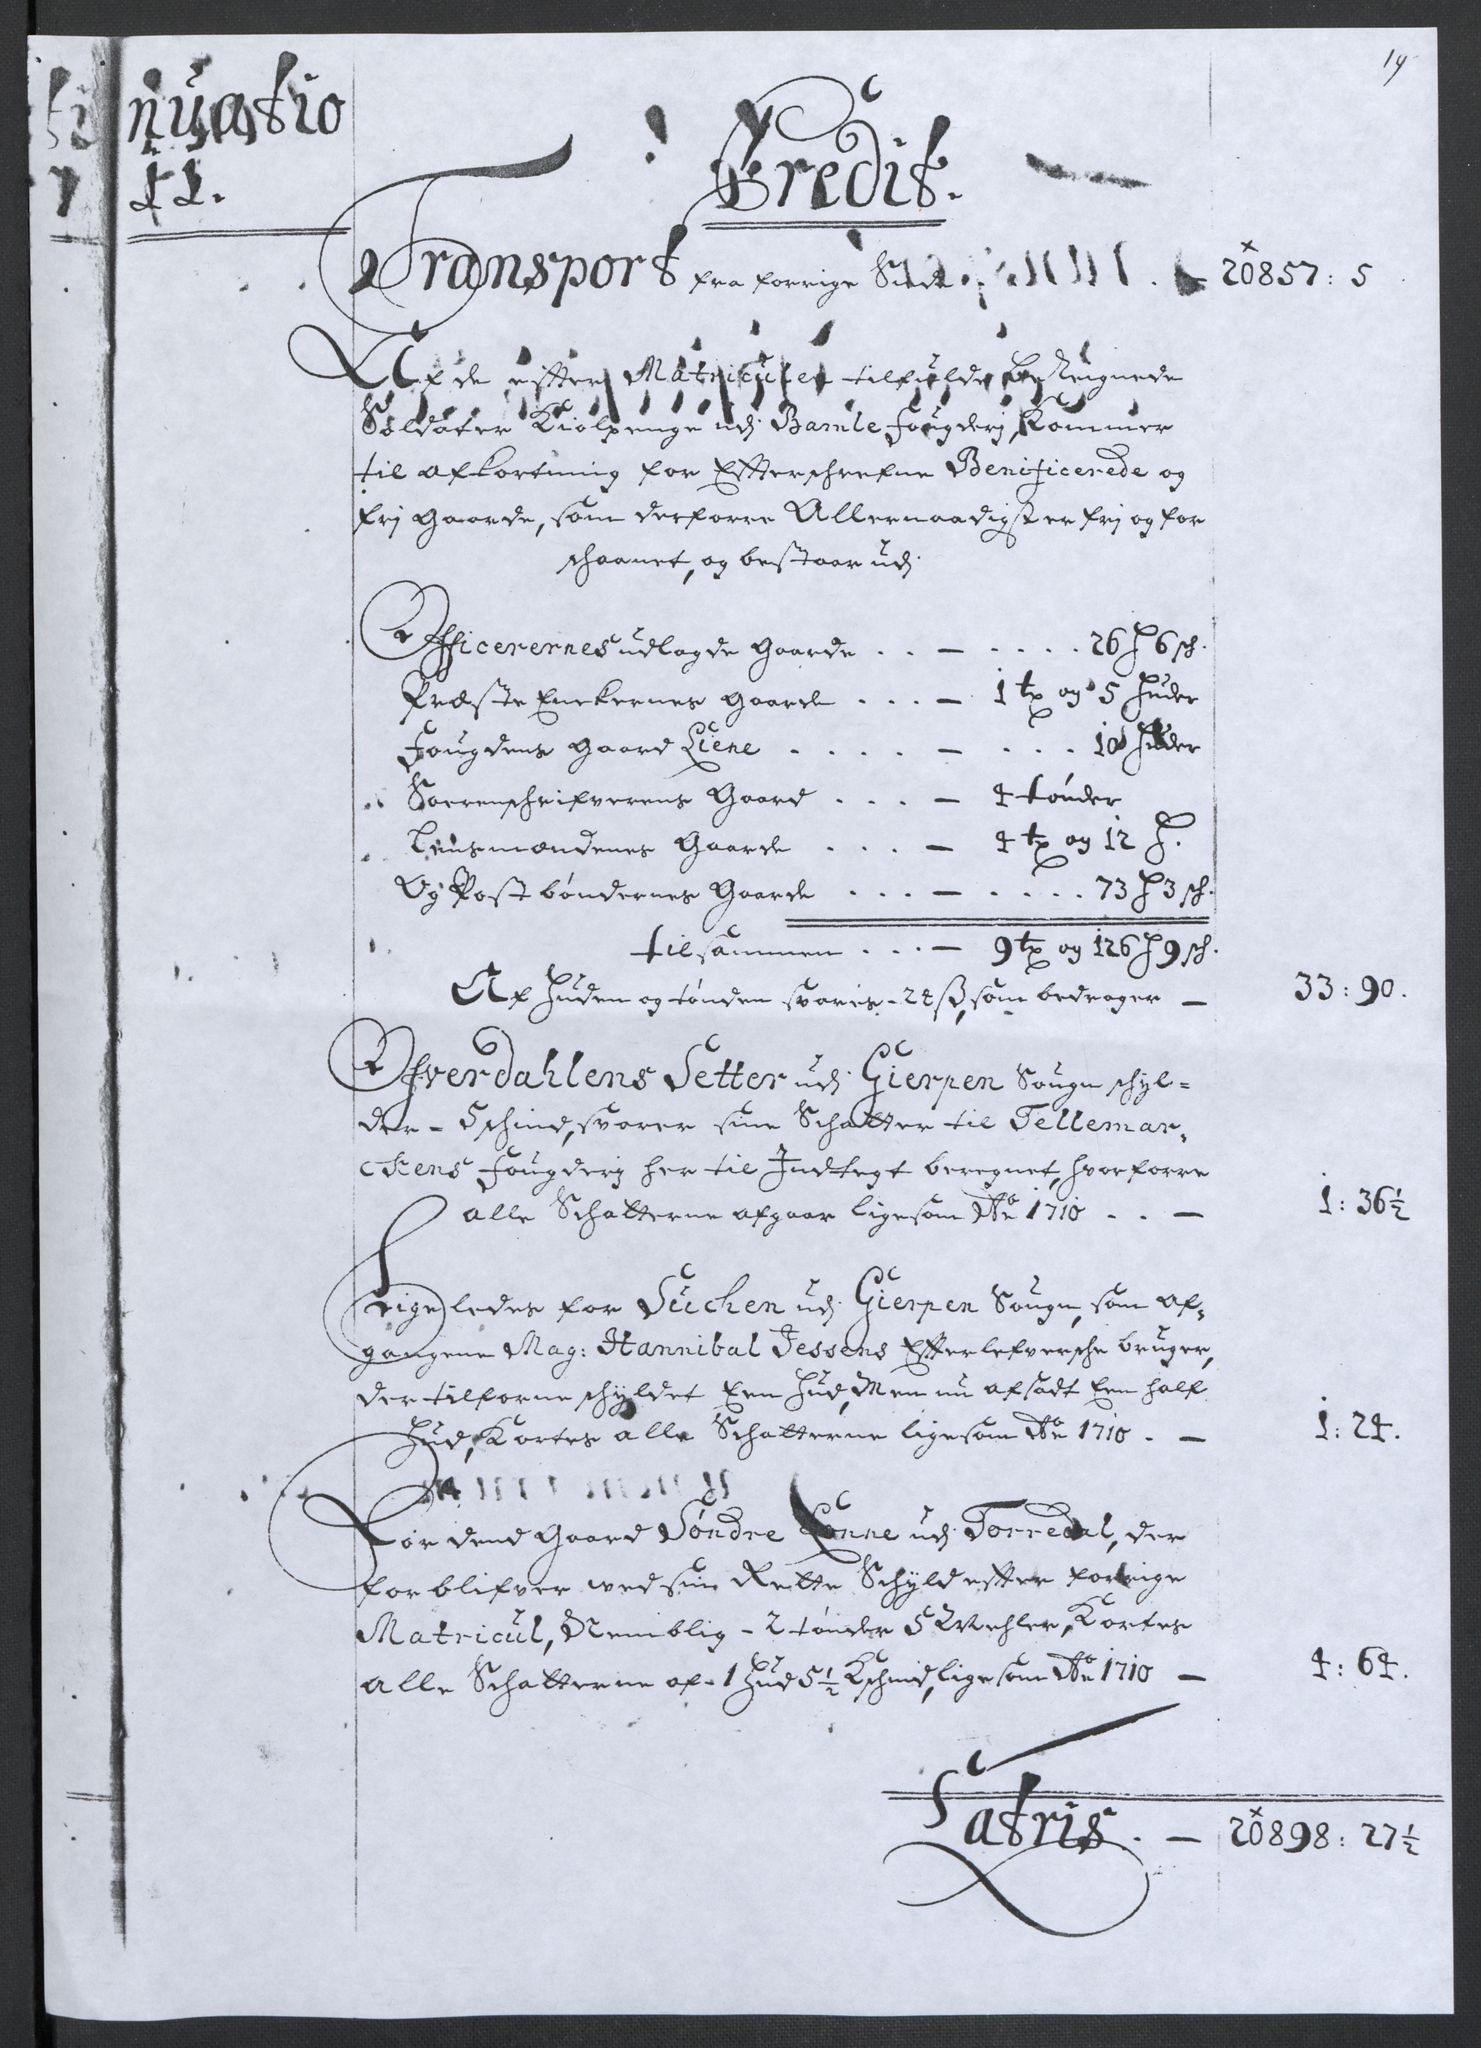 19
nuatio
11.
Credit.
Transport fra forrige Side . . 20857: 5
Af de effter Matriculen tilfulde bereignede
Soldater Kiolpenge udj Bamle fougderj, Kommer
til afkortning for Effterschrefne Benificerede og
frj gaarde, som derforre Allernaadigst er frj og for
schaanet, og bestaar udj
Officerernes udlagde gaarde . . — . . . . 26 H 6 sch.
Præste Enckernes gaarde . . . — 1 tx og 5 huder
Fougdens gaard Liene . . . . — . . . 10 huder
Sorenschrifverens Gaard . . . — 4 tønder
Lensmændenes Gaarde . . . — 4 tx og 12 H.
Og Postbøndernes Gaarde . . . — . . . . 73 H 3 sch.
tilsammen . . . — 9 tx og 126 H 9 sch.
Af Huden og tønden svaris - 24 ß, som bedrager — 33: 90.
Ofverdahlens Setter udj Gierpen Sougn schyl=
der - 5 schind, svarer sine Schatter til Tellemar=
ckens fougderj her til Indtegt beregnet, hvorforre
alle Schatterne afgaar ligesom Ao 1710 . . — 1: 36½
Ligeledes for Suchen udj Gierpen Sougn, som af=
gangene Mag: Hannibal Jessens Efterlefversche bruger,
der tilforne schyldet Een Hud, Men nu afsadt Een half
Hud, Kortes alle Schatterne ligesom Ao 1710 . — 1: 24.
For dend Gaard Søndre Lønne udj Torredal, der
forblifver ved sin Rette Schyld effter forrige
Matricul, Nemblig - 2 tønder 5 Wehler, Kortes
alle Schatterne af - 1 Hud 5½ Kschind, ligesom Ao 1710 — 4: 64.
Latris. — 20898: 27½